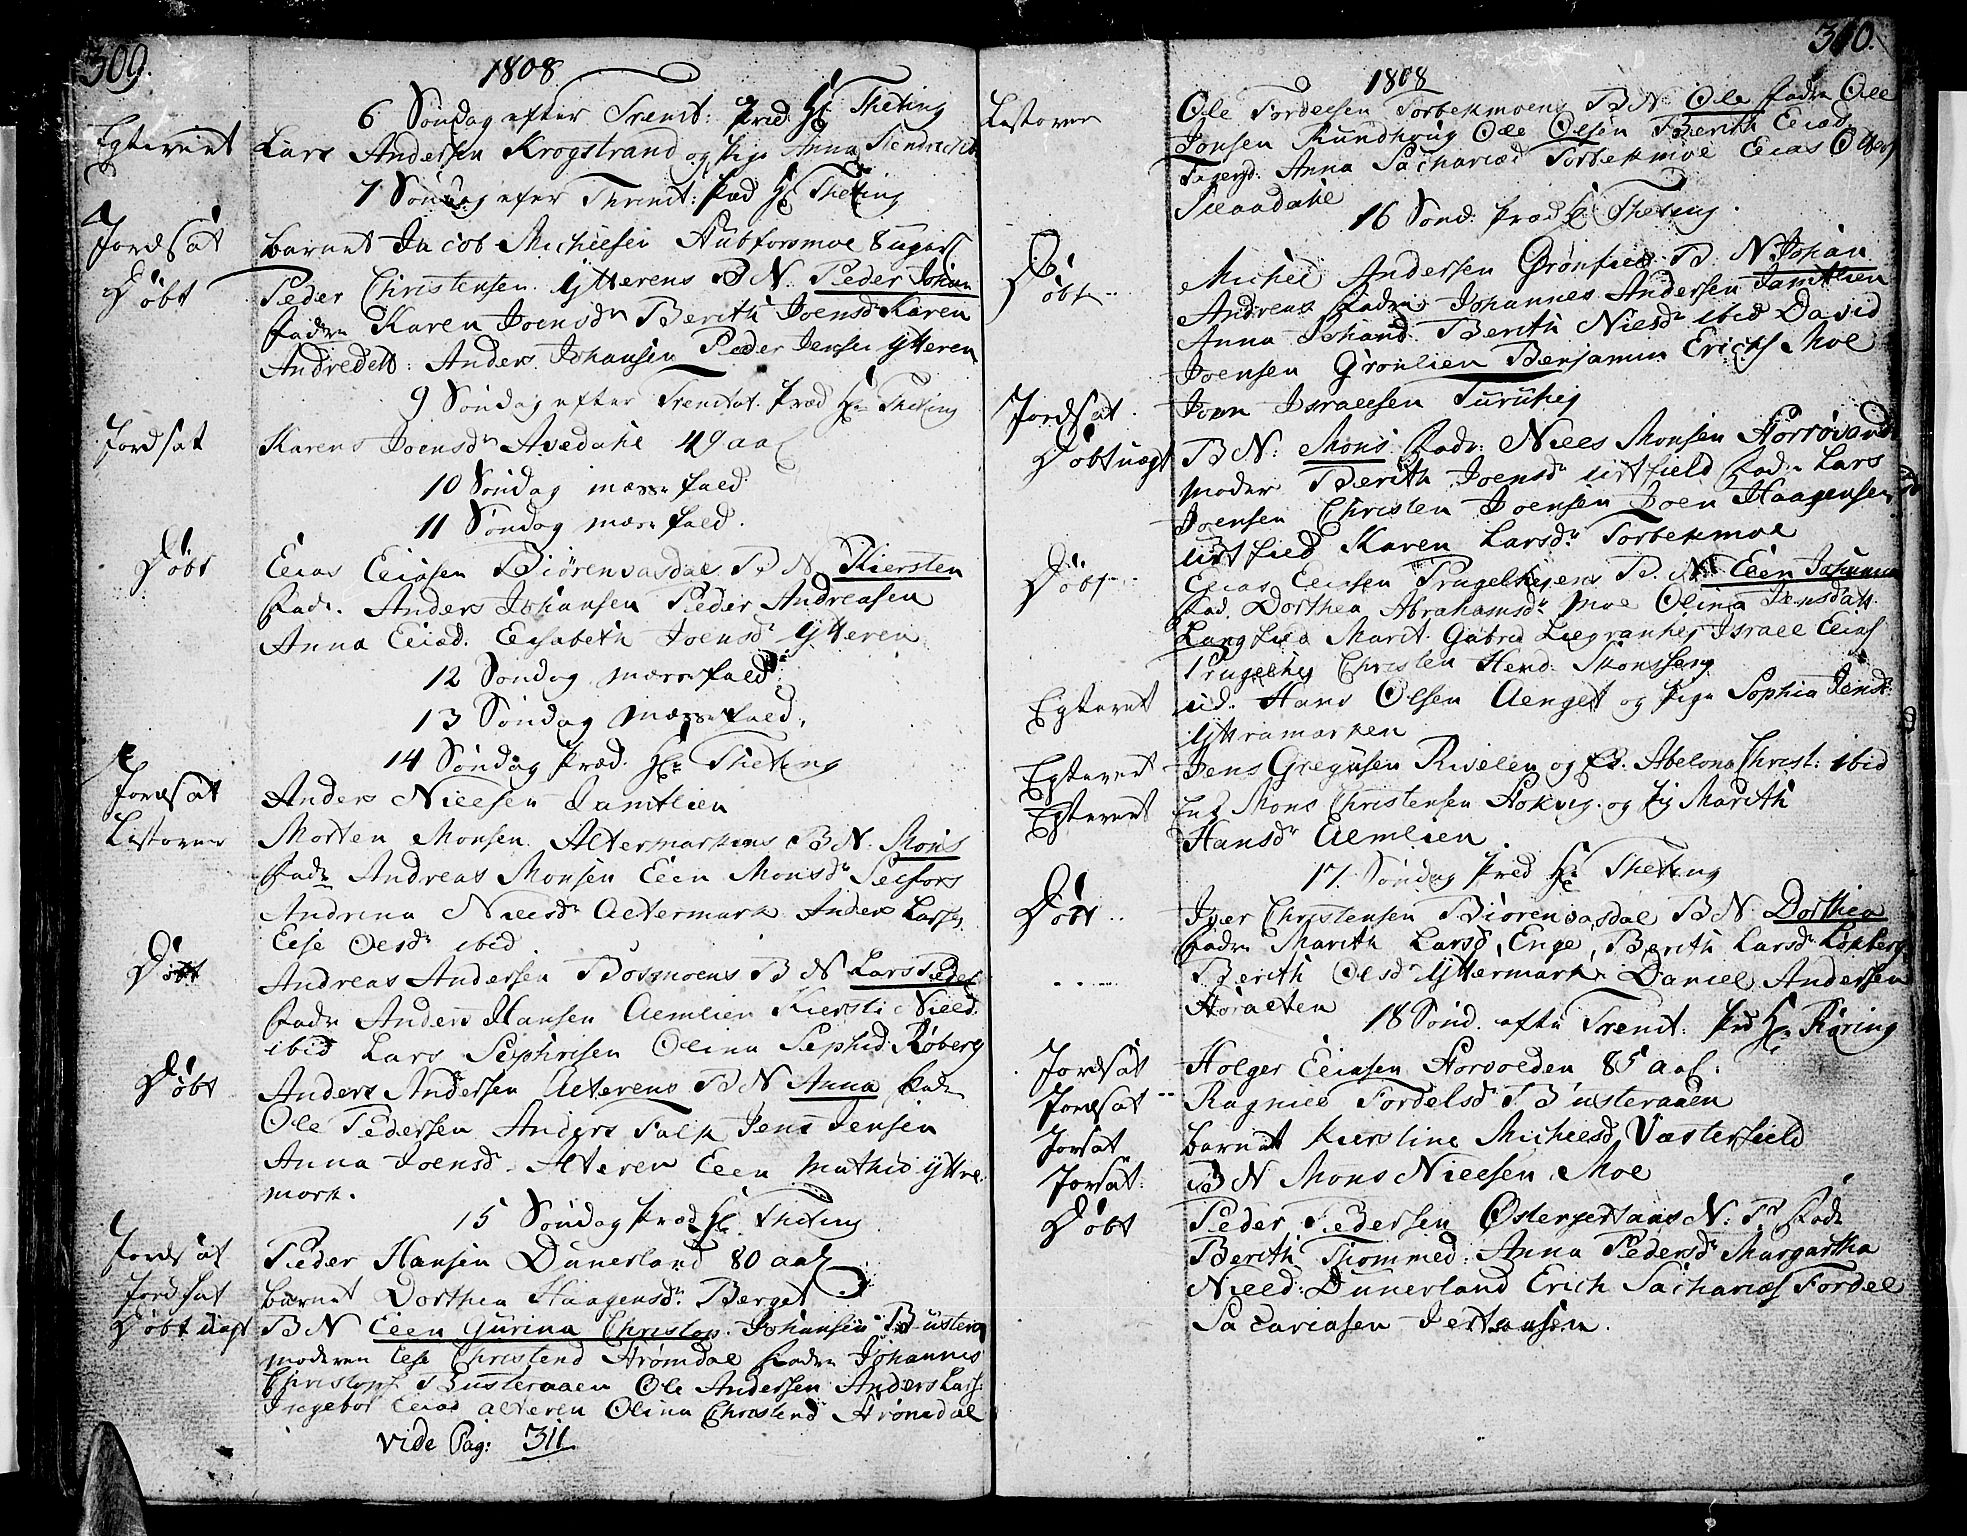 309.
1808
6 Søndag efter Trenit: Præd: Hr Theting
Egteviet Lars Andersen Krogstrand og Pige Anna Hendrichsd
7 Søndag efter Threnit: Præd Hr Theting
Jordsat barnet Jacob Michelsen Aubforsmoe 8 uger
Døbt Peder Christensen Ytterens B N. Peder Johan
Fadr Karen Joensdr Berith Joensdr Karen
Andredatt: Anders Johansen Peder Jensen Ytteren
9 Søndag efter Trenitat. Præd Hr Theting
Jordsat Karen Joensdr Avedahl 49 aar
10 Søndag messefald
11 Søndag messefald.
Døbt Elias Eliasen Biørenvasdal B N Kiersten
Fadr. Anders Johansen Peder Andreasen
Anna Eliæd. Elisabeth Joensdr Ytteren
12 Søndag messefald
13 Søndag messefald.
14 Søndag Præd. Hr Theting
Jordsat Anders Nielsen Jamtlien
Morten Monsen Altermarkens B N. Mons
Fadr Andreas Monsen Elen Monsdr Selfors
Andrina Nielsdr Altermark Anders Lars
Else Olsdr ibid.
Døbt Andreas Andersen Bosmoens B N Lars Peder
Fadr Anders Hansen Aemlien Kiersti Nielsd
ibid Lars Sephrisen Olina Sephid: Røberg
Døbt Anders Andersen Alterens B N Anna Fadr
Ole Pedersen Anders Falk Jens Jensen
Anna Joensd. Alteren Elen Mathisd Yttre
mark.
15 Søndag Præd Hr Theting
Jordsat Peder Hansen Dunerland 80 aar
Jordsat barnet Dorthea Haagensdr Berget
Døbt uægt B N Elen Gurina Christop. Johansen B usteraa
moderen Else Christensd Strømdal Fadr Johannes
Christophs Busteraaen Ole Andersen Anders Lars
Ingebor Eliæd Alteren Olina Christensd Strømdal
vide Pag: 311
310.
1808
Ole Fordelsen Torbekmoens B N. Ole Fadr Ole
Jonsen Rundhoug Ole Olsen Berith Eliæd
Anna Sachariæd Torbekmoe Elias Olsen
16 Sønd. Præd Hr Theting.
Døbt Michel Andersen Grønfield B. N. Johan
Andreas Fadr Johannes Andersen Jamtlien
Anna Johansd. Berith Nielsdr ibid David
Joensen Grønlien Benjamin Erichs Moe
Jordsat. Joen Israelsen Turuhej
Døbt uægt B N: Mons Fadr: Niels Monsen Storrøvand
moder Berith Joensdr Urtfield Fadr Lars
Joensen Christen Joensen Joen Haagensen
Urtfield Karen Larsdr Torbekmoe
Døbt Elias Eliasen Prugelhejens B. N Elen Johanna
Fad. Dorthea Abrahamsdr Moe Olina Jensdatt
Langfield Marit Gabrid Israel Elias
Prugelhej Christen Hend. Skonseng
Egteviet Hans Olsen Aenget og Pige Sophia Jensdr
Yttramarken
Egteviet Jens Gregusen Rivelen og Abelona Christ: ibid
Egteviet Mons Christensen og Pig Marith
Hansdr Aemlien.
17. Søndag Præd Hr Theting
Døbt Iver Christensen Biørenvasdal B N Dorthea
Fadr Marith Larsd, Enge, Berith Larsdr
Berith Olsdr Yttermark Daniel Andersen
18 Sønd. efter Trenit: Præd Hr Røring
Jordsat Holger Eliasen Storvolden 85 aar.
Jordsat Ragniel Fordelsdr Busteraaen
Jorsat barnet Kierstine Michelsd Vesterfield
Jorsat. B N Mons Nielsen Moe
Døbt Peder Pedersen N: P Fadr
Berith Thommed: Anna Pedersdr Margartha
Nielsd: Dunerland Erich Sachariæs Fordel
Sacariasen